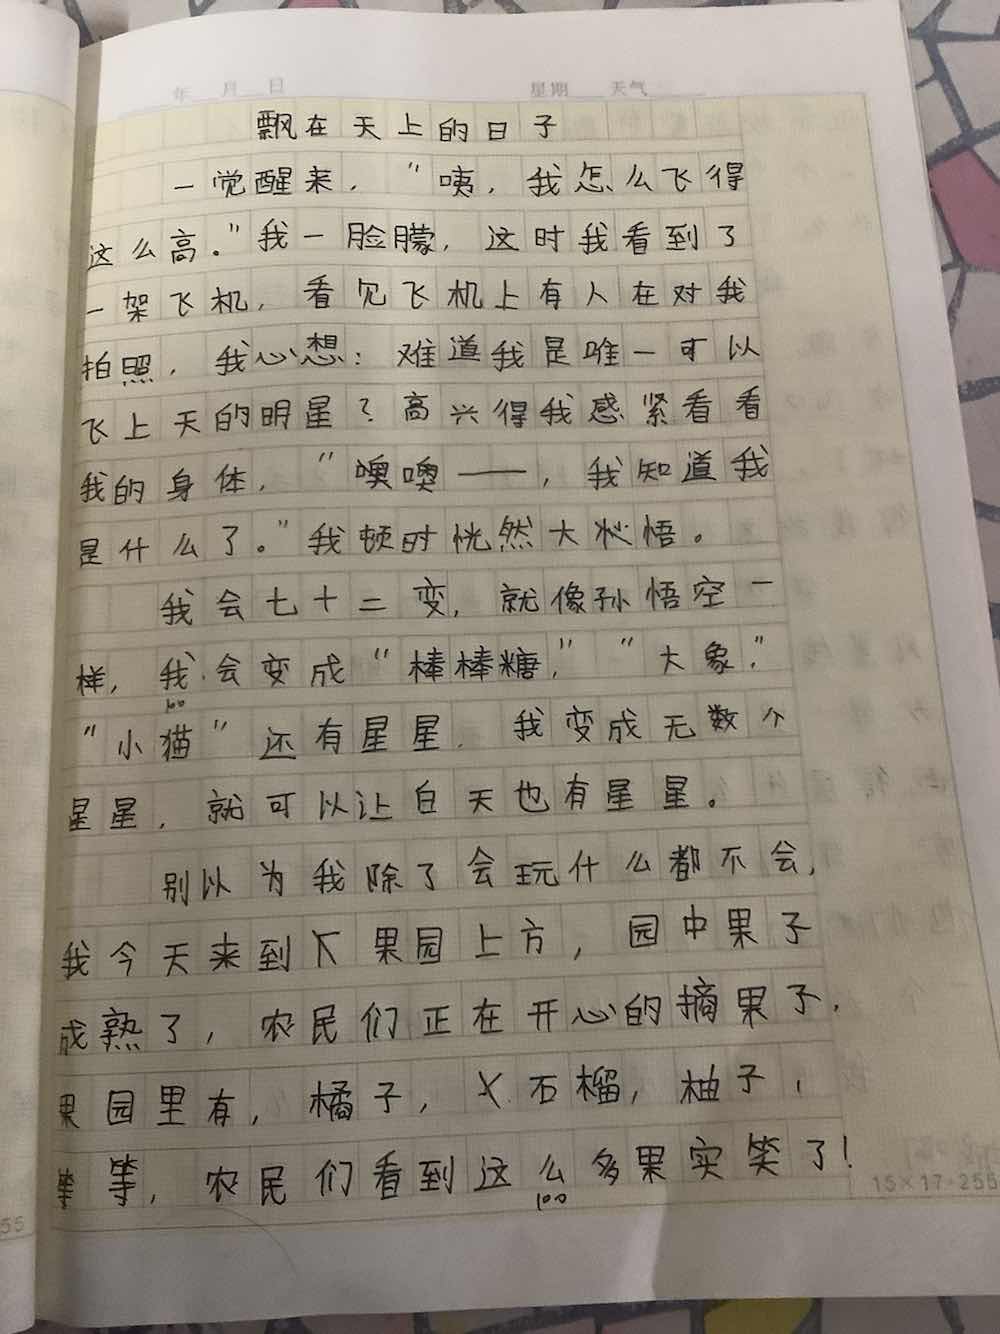 年 月 日 星期 天气
飘在天上的日子
一觉醒来，“咦，我怎么飞得
这么高。”我一脸朦，这时我看到了
一架飞机，看见飞机上有人在对我
拍照，我心想：难道我是唯一可以
飞上天的明星？高兴得我感紧看看
我的身体，“噢噢——，我知道我
是什么了。”我顿时恍然大悟。
我会七十二变，就像孙悟空一
样，我会变成“棒棒糖，”“大象，”
“小猫”还有星星．我变成无数个
星星，就可以让白天也有星星。
别以为我除了会玩什么都不会，
我今天来到果园上方，园中果子
成熟了，农民们正在开心的摘果子，
果园里有，橘子，石榴，柚子，
等等，农民们看到这么多果实笑了！
100
15×17=255
55